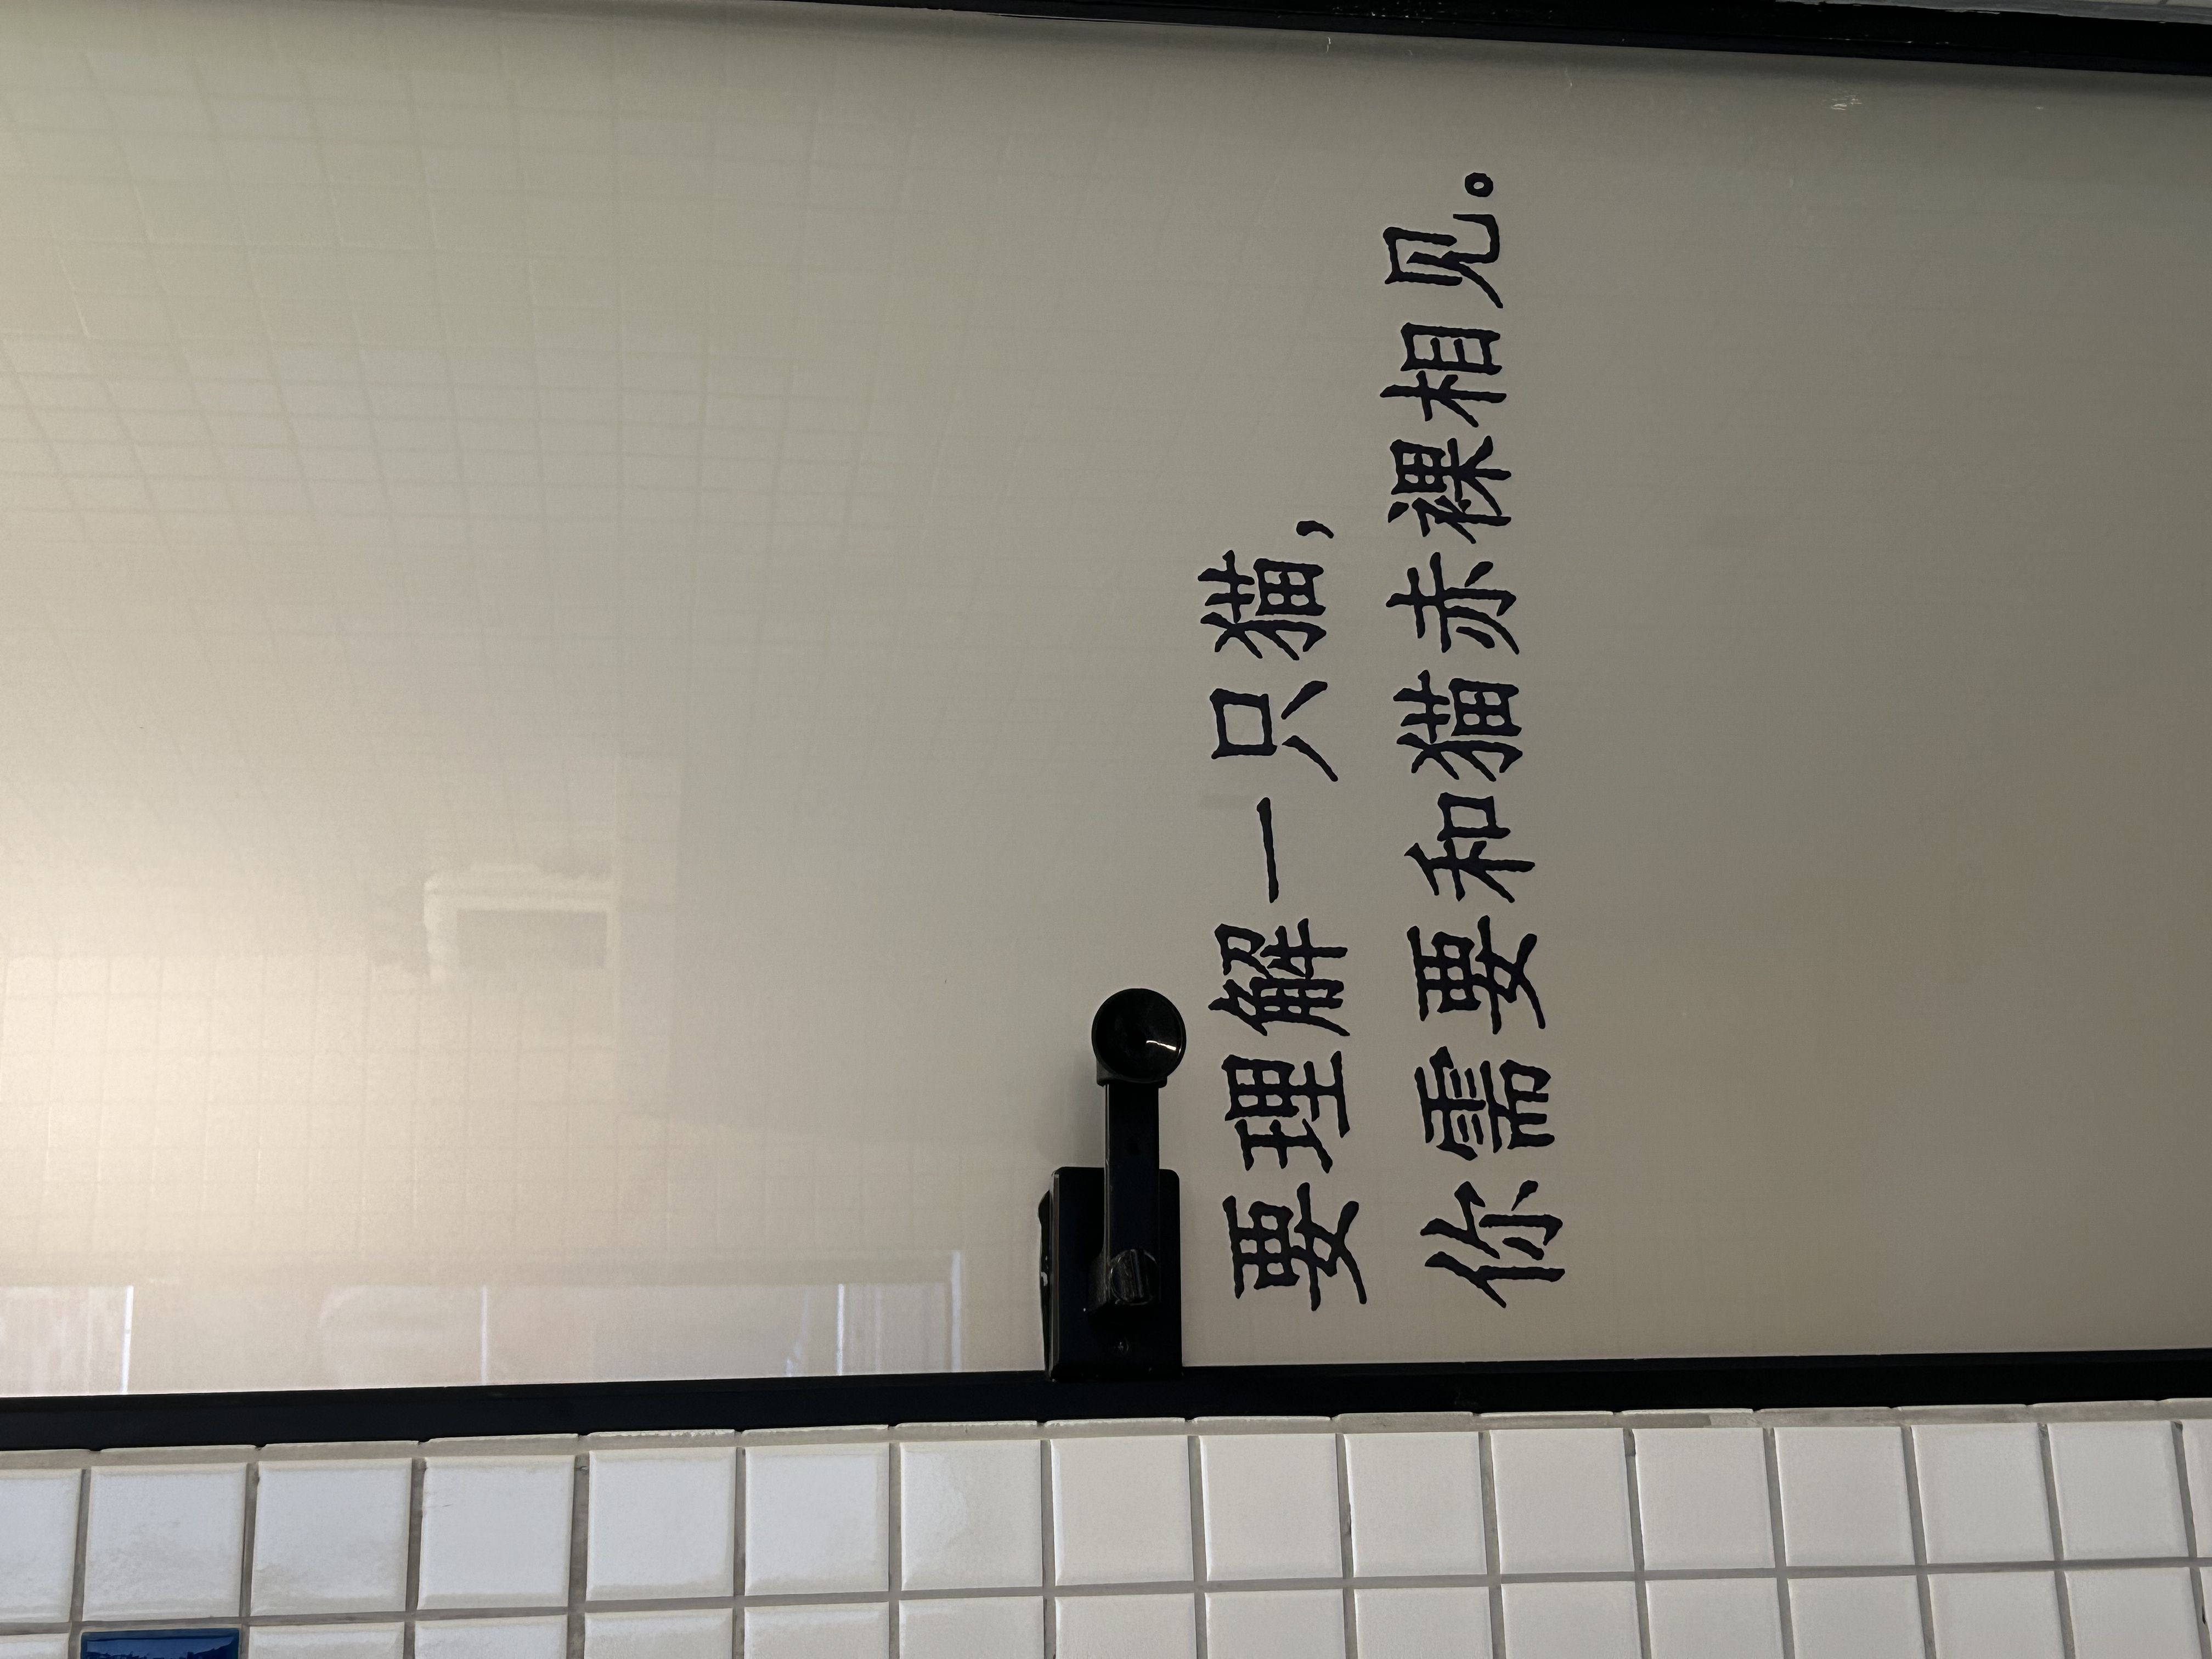 要理解一只猫，
你需要和猫赤裸相见。